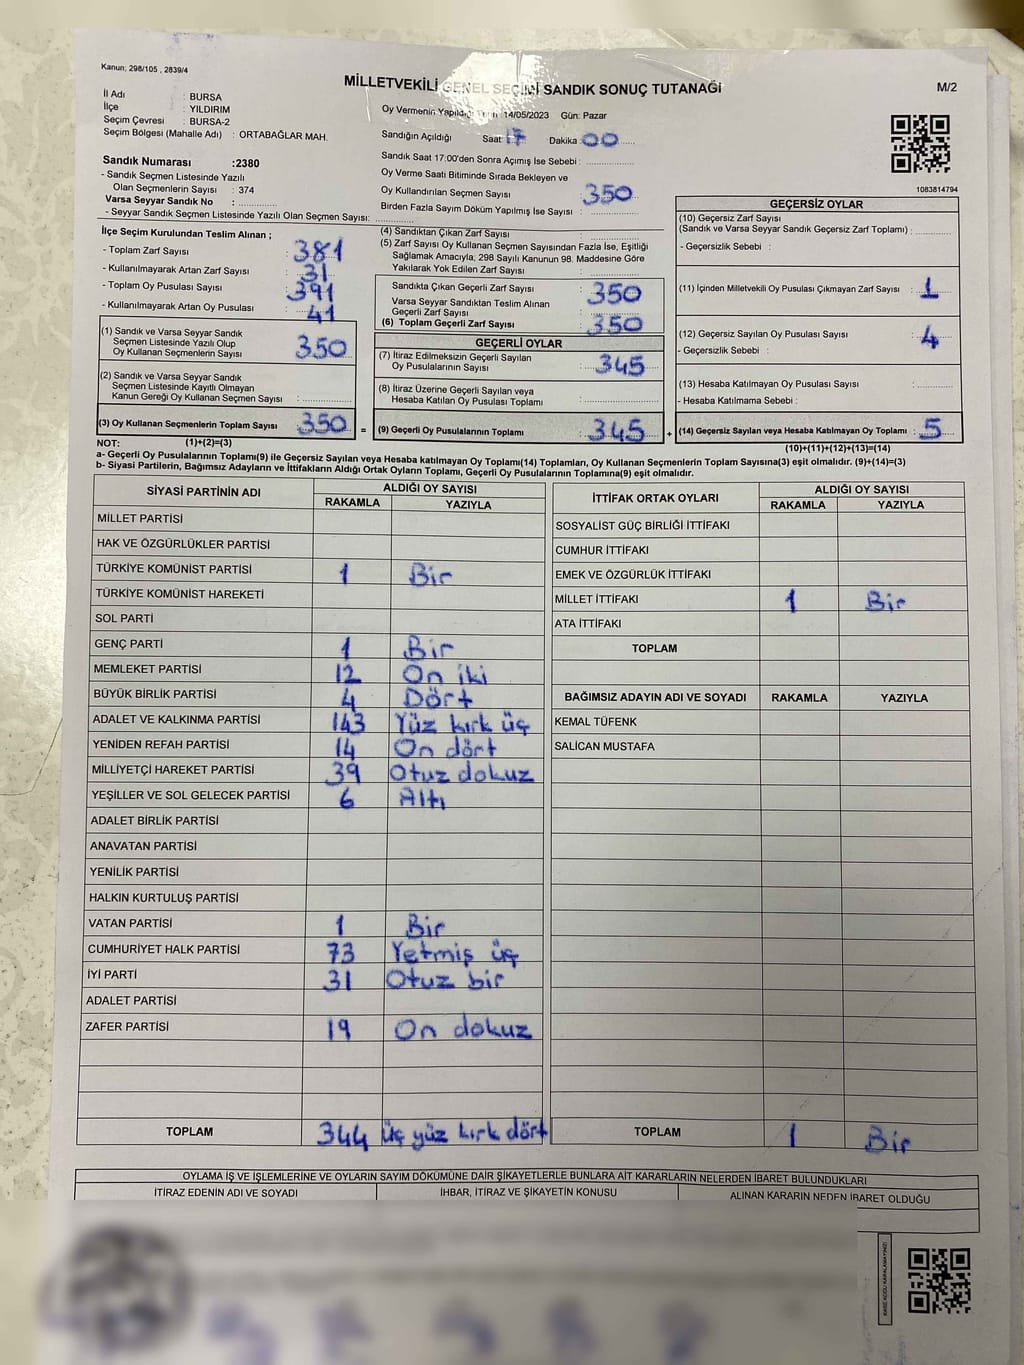 Kanun; 298/105 , 2839/4
MİLLETVEKİLİ GENEL SEÇİMİ SANDIK SONUÇ TUTANAĞI
M/2
İl Adı : BURSA
İlçe : YILDIRIM
Seçim Çevresi : BURSA-2
Seçim Bölgesi (Mahalle Adı) : ORTABAĞLAR MAH.
Oy Vermenin Yapıldığı 14/05/2023 Gün: Pazar
Sandığın Açıldığı Saat 17 Dakika 00
Sandık Saat 17:00'den Sonra Açımış İse Sebebi :
Oy Verme Saati Bitiminde Sırada Bekleyen ve
Oy Kullandırılan Seçmen Sayısı : 350
Birden Fazla Sayım Döküm Yapılmış İse Sayısı :
1083814794
Sandık Numarası :2380
- Sandık Seçmen Listesinde Yazılı
Olan Seçmenlerin Sayısı : 374
Varsa Seyyar Sandık No :
- Seyyar Sandık Seçmen Listesinde Yazılı Olan Seçmen Sayısı:
İlçe Seçim Kurulundan Teslim Alınan ;
- Toplam Zarf Sayısı : 381
- Kullanılmayarak Artan Zarf Sayısı : 31
- Toplam Oy Pusulası Sayısı : 391
- Kullanılmayarak Artan Oy Pusulası : 41
(1) Sandık ve Varsa Seyyar Sandık
Seçmen Listesinde Yazılı Olup
Oy Kullanan Seçmenlerin Sayısı : 350
(2) Sandık ve Varsa Seyyar Sandık
Seçmen Listesinde Kayıtlı Olmayan
Kanun Gereği Oy Kullanan Seçmen Sayısı :
(3) Oy Kullanan Seçmenlerin Toplam Sayısı : 350 =
(4) Sandıktan Çıkan Zarf Sayısı :
(5) Zarf Sayısı Oy Kullanan Seçmen Sayısından Fazla İse, Eşitliği
Sağlamak Amacıyla; 298 Sayılı Kanunun 98. Maddesine Göre
Yakılarak Yok Edilen Zarf Sayısı :
Sandıkta Çıkan Geçerli Zarf Sayısı : 350
Varsa Seyyar Sandıktan Teslim Alınan
Geçerli Zarf Sayısı :
(6) Toplam Geçerli Zarf Sayısı : 350
GEÇERLİ OYLAR
(7) İtiraz Edilmeksizin Geçerli Sayılan
Oy Pusulalarının Sayısı : 345
(8) İtiraz Üzerine Geçerli Sayılan veya
Hesaba Katılan Oy Pusulası Toplamı :
(9) Geçerli Oy Pusulalarının Toplamı : 345 +
GEÇERSİZ OYLAR
(10) Geçersiz Zarf Sayısı
(Sandık ve Varsa Seyyar Sandık Geçersiz Zarf Toplamı) :
- Geçersizlik Sebebi :
(11) İçinden Milletvekili Oy Pusulası Çıkmayan Zarf Sayısı : 1
(12) Geçersiz Sayılan Oy Pusulası Sayısı : 4
- Geçersizlik Sebebi :
(13) Hesaba Katılmayan Oy Pusulası Sayısı :
- Hesaba Katılmama Sebebi :
(14) Geçersiz Sayılan veya Hesaba Katılmayan Oy Toplamı : 5
NOT: (1)+(2)=(3) (10)+(11)+(12)+(13)=(14)
a- Geçerli Oy Pusulalarının Toplamı(9) ile Geçersiz Sayılan veya Hesaba katılmayan Oy Toplamı(14) Toplamları, Oy Kullanan Seçmenlerin Toplam Sayısına(3) eşit olmalıdır. (9)+(14)=(3)
b- Siyasi Partilerin, Bağımsız Adayların ve İttifakların Aldığı Ortak Oyların Toplamı, Geçerli Oy Pusulalarının Toplamına(9) eşit olmalıdır.
SİYASİ PARTİNİN ADI ALDIĞI OY SAYISI
RAKAMLA YAZIYLA
MİLLET PARTİSİ
HAK VE ÖZGÜRLÜKLER PARTİSİ
TÜRKİYE KOMÜNİST PARTİSİ 1 Bir
TÜRKİYE KOMÜNİST HAREKETİ
SOL PARTİ
GENÇ PARTİ 1 Bir
MEMLEKET PARTİSİ 12 On iki
BÜYÜK BİRLİK PARTİSİ 4 Dört
ADALET VE KALKINMA PARTİSİ 143 Yüz kırk üç
YENİDEN REFAH PARTİSİ 14 On dört
MİLLİYETÇİ HAREKET PARTİSİ 39 Otuz dokuz
YEŞİLLER VE SOL GELECEK PARTİSİ 6 Altı
ADALET BİRLİK PARTİSİ
ANAVATAN PARTİSİ
YENİLİK PARTİSİ
HALKIN KURTULUŞ PARTİSİ
VATAN PARTİSİ 1 Bir
CUMHURİYET HALK PARTİSİ 73 Yetmiş üç
İYİ PARTİ 31 Otuz bir
ADALET PARTİSİ
ZAFER PARTİSİ 19 On dokuz
TOPLAM 344 üç yüz kırk dört
İTTİFAK ORTAK OYLARI ALDIĞI OY SAYISI
RAKAMLA YAZIYLA
SOSYALİST GÜÇ BİRLİĞİ İTTİFAKI
CUMHUR İTTİFAKI
EMEK VE ÖZGÜRLÜK İTTİFAKI
MİLLET İTTİFAKI 1 Bir
ATA İTTİFAKI
TOPLAM
BAĞIMSIZ ADAYIN ADI VE SOYADI RAKAMLA YAZIYLA
KEMAL TÜFENK
SALİCAN MUSTAFA
TOPLAM 1 Bir
OYLAMA İŞ VE İŞLEMLERİNE VE OYLARIN SAYIM DÖKÜMÜNE DAİR ŞİKAYETLERLE BUNLARA AİT KARARLARIN NELERDEN İBARET BULUNDUKLARI
İTİRAZ EDENİN ADI VE SOYADI İHBAR, İTİRAZ VE ŞİKAYETİN KONUSU ALINAN KARARIN NEDEN İBARET OLDUĞU